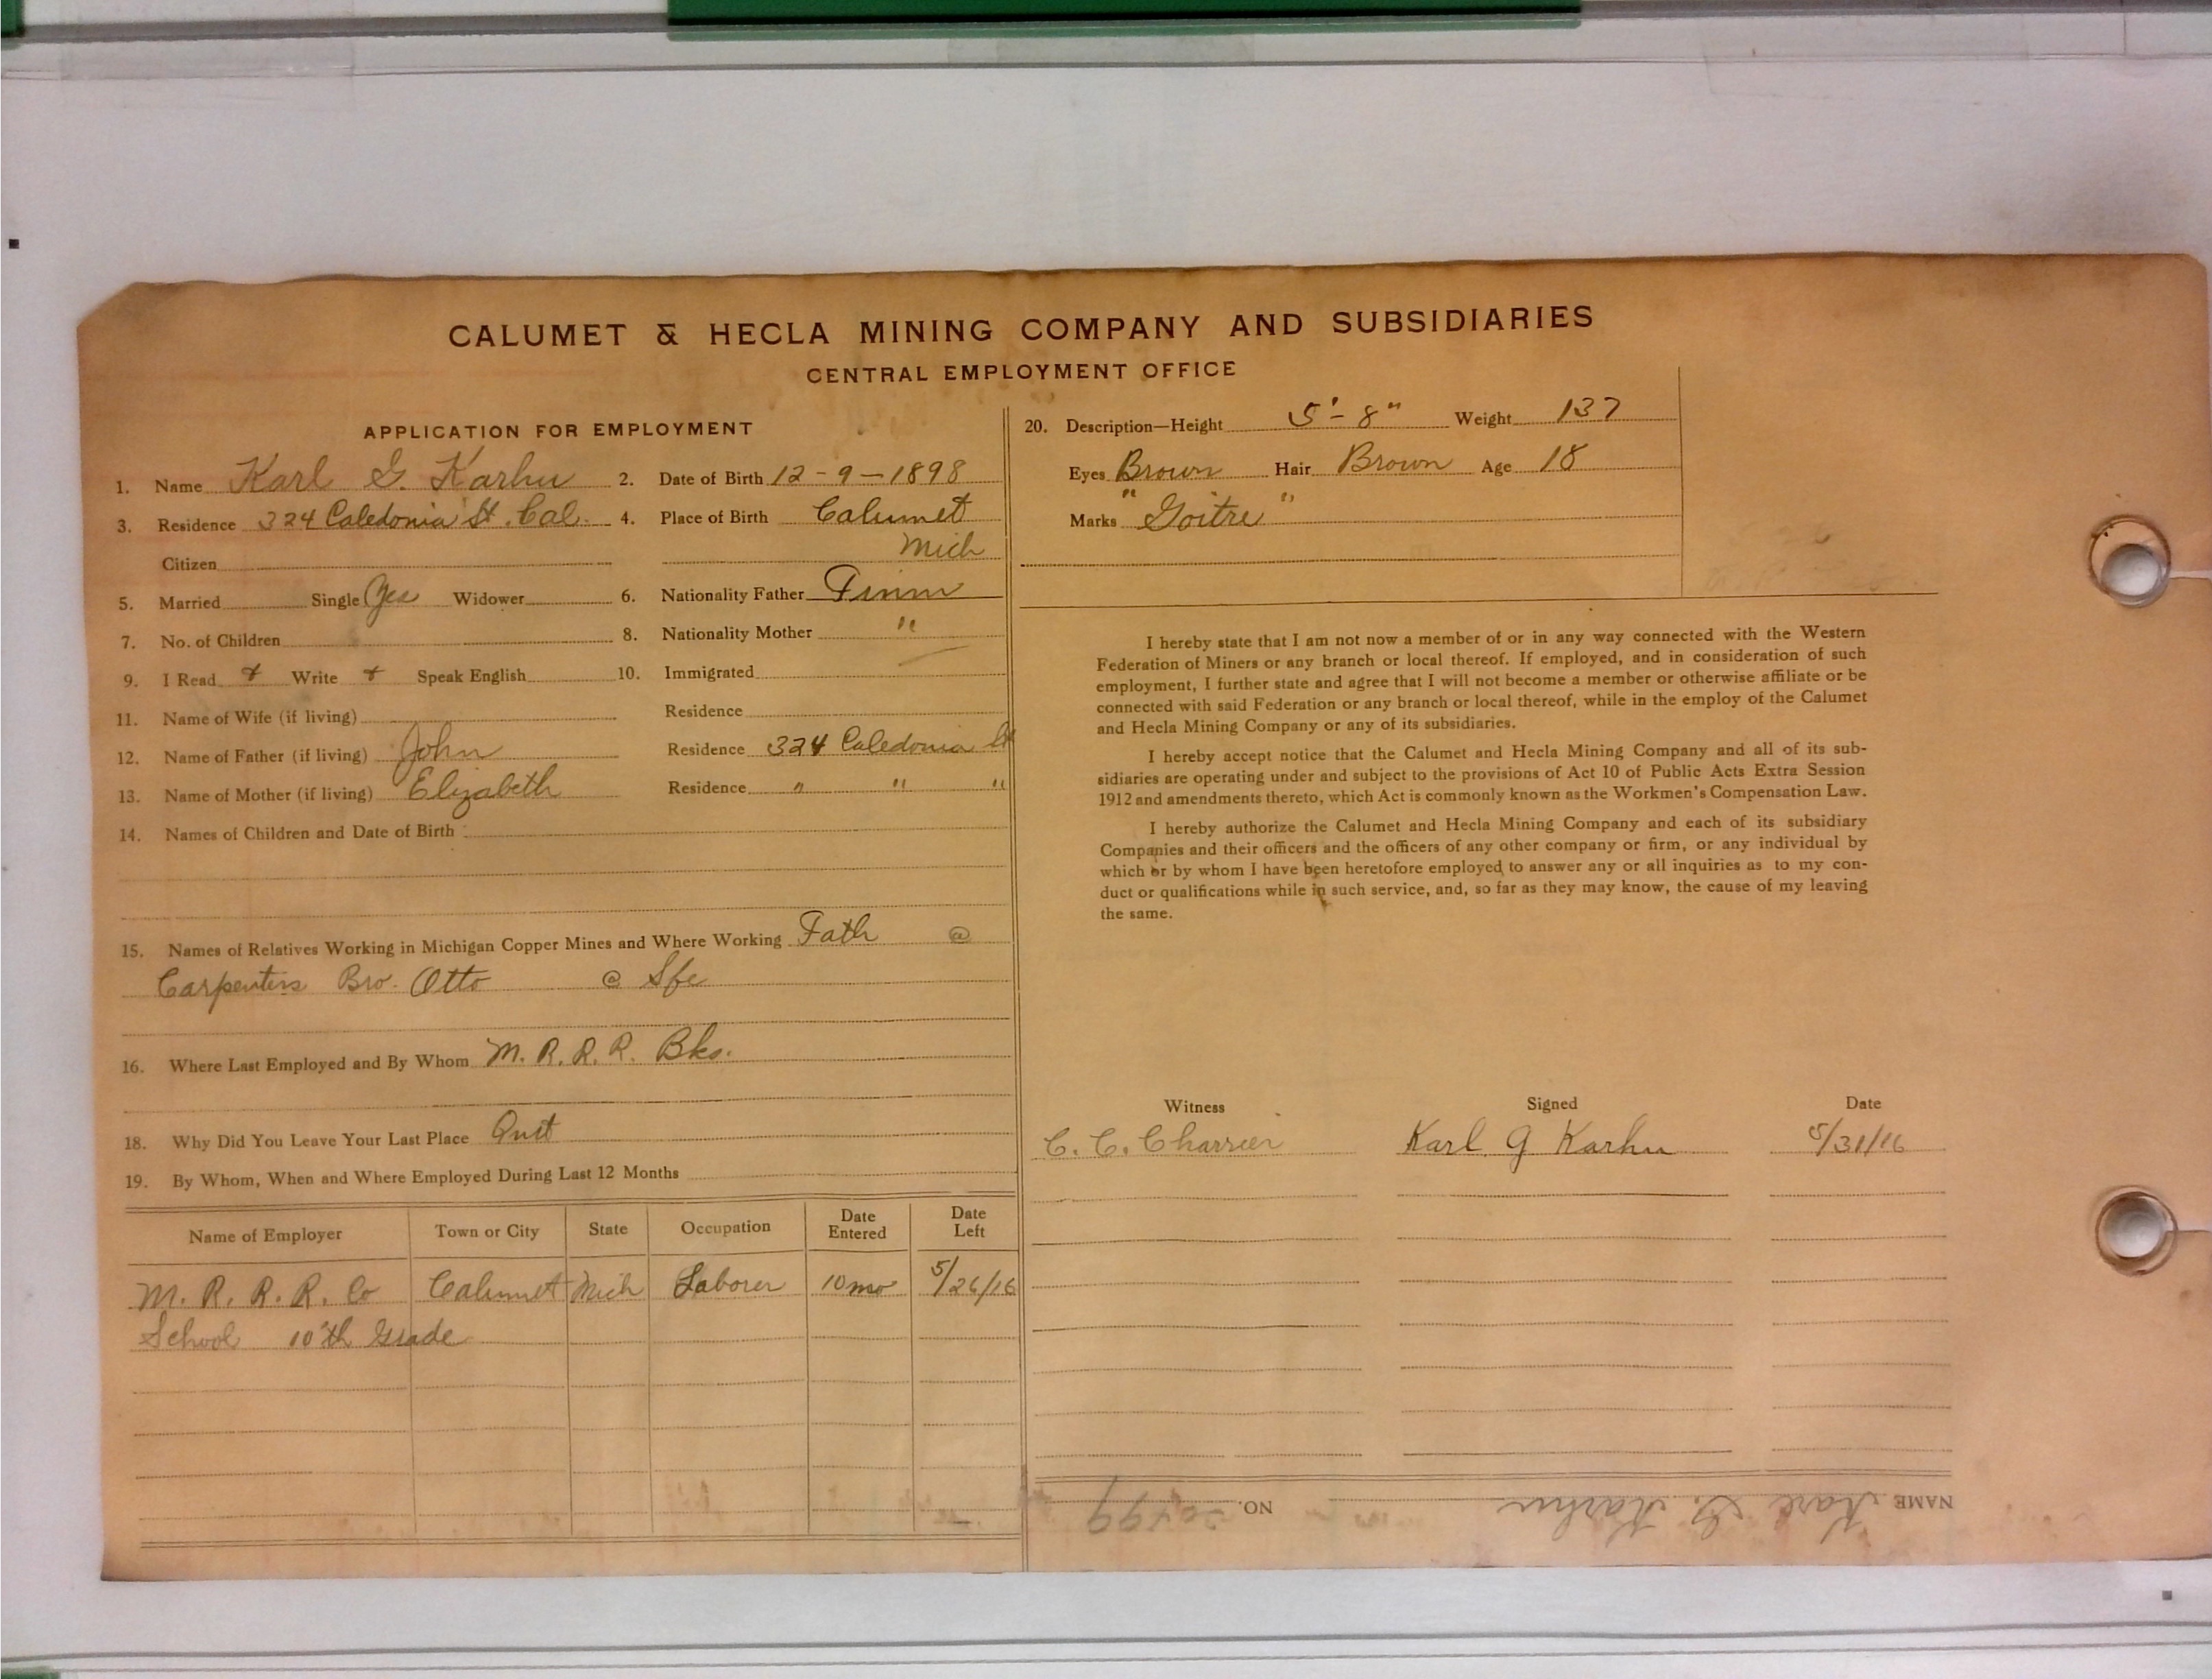 CALUMET & HECLA MINING COMPANY AND SUBSIDIARIES
CENTRAL EMPLOYMENT OFFICE
APPLICATION FOR EMPLOYMENT
1. Name Karl G. Karhu 2. Date of Birth 12-9-1898
3. Residence 324 Caledonia St. Cal. 4. Place of Birth Calumet
Citizen Mich
5. Married Single Yes Widower 6. Nationality Father Finn
7. No. of Children 8. Nationality Mother "
9. I Read Write Speak English 10. Immigrated
11. Name of Wife (if living) Residence
12. Name of Father (if living) John Residence 324 Caledonia St
13. Name of Mother (if living) Elizabeth Residence " " "
14. Names of Children and Date of Birth
15. Names of Relatives Working in Michigan Copper Mines and Where Working Fath @
Carpenters Bro. Otto @ Sfe
16. Where Last Employed and By Whom M. R. R. R. Bks.
18. Why Did You Leave Your Last Place Quit
19. By Whom, When and Where Employed During Last 12 Months
Name of Employer Town or City State Occupation Date Entered Date Left
M. R. R. R. Co Calumet Mich Laborer 10 mo 5/26/16
School 10'th Grade
20. Description—Height 5'-8" Weight 137
Eyes Brown Hair Brown Age 18
Marks "Goitre"
I hereby state that I am not now a member of or in any way connected with the Western
Federation of Miners or any branch or local thereof. If employed, and in consideration of such
employment, I further state and agree that I will not become a member or otherwise affiliate or be
connected with said Federation or any branch or local thereof, while in the employ of the Calumet
and Hecla Mining Company or any of its subsidiaries.
I hereby accept notice that the Calumet and Hecla Mining Company and all of its sub-
sidiaries are operating under and subject to the provisions of Act 10 of Public Acts Extra Session
1912 and amendments thereto, which Act is commonly known as the Workmen's Compensation Law.
I hereby authorize the Calumet and Hecla Mining Company and each of its subsidiary
Companies and their officers and the officers of any other company or firm, or any individual by
which or by whom I have been heretofore employed to answer any or all inquiries as to my con-
duct or qualifications while in such service, and, so far as they may know, the cause of my leaving
the same.
Witness Signed Date
C. C. Charrier Karl G Karhu 5/31/16
NAME Karl G. Karhu NO.